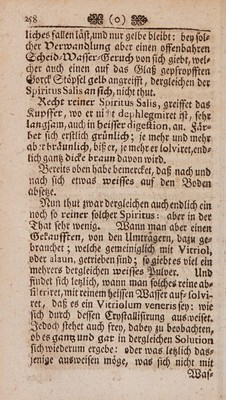 258 (o)
liches fallen läst, und nur gelbe bleibt: bey sol-
cher Verwandlung aber einen offenbahren
Scheid-Wasser-Geruch von sich giebt, wel-
cher auch einen auf das Glaß gepfropfften
Gorck Stöpsel gelb angreifft, dergleichen der
Spiritus Salis an sich, nicht thut.
Recht reiner Spiritus Salis, greiffet das
Kupffer, wo er nicht dephlegmiret ist, sehr
langsam, auch in heisser digestion, an. Fär-
bet sich erstlich grünlich; je mehr und mehr
aber bräunlich, biß er, je mehr er solviret, end-
lich gantz dicke braun davon wird.
Bereits oben habe bemercket, daß nach und
nach sich etwas weisses auf den Boden
absetze.
Nun thut zwar dergleichen auch endlich ein
noch so reiner solcher Spiritus: aber in der
That sehr wenig. Wann man aber einen
Gekaufften, von den Umträgern, dazu ge-
brauchet; welche gemeiniglich mit Vitriol,
oder alaun, getrieben sind; so giebt es viel ein
mehrers dergleichen weisses Pulver. Und
findet sich letzlich, wann man solches reine ab-
filtriret, mit reinem heissen Wasser auf solvi-
ret, daß es ein Vitriolum veneris sey: wie
sich durch dessen Crystallisirung ausweiset.
Jedoch stehet auch frey, dabey zu beobachten,
ob es gantz und gar in dergleichen Solution
sich wiederum ergebe: oder was letzlich das-
jenige ausweisen möge, was sich nicht mit
Was-